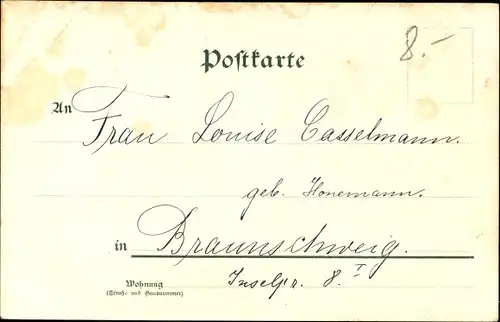 Postkarte
8.-
An Frau Louise Casselmann.
geb. Honemann.
in Braunschweig.
Wohnung
(Straße und Hausnummer)
Inselpr. 8. I